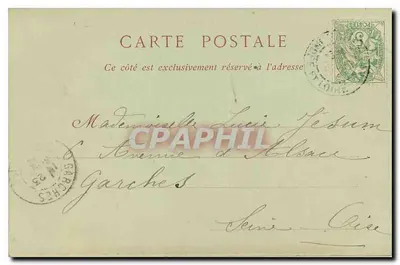 CARTE POSTALE
Ce côté est exclusivement réservé à l'adresse
Mademoiselle Lucie Jésum
6 Avenue d'Alsace
Garches
Seine-Oise
CPAPHIL
GARCHES
ET LOIRE